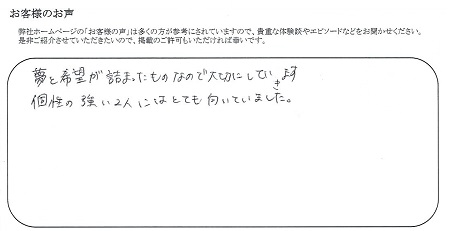 お客様のお声
弊社ホームページの「お客様の声」は多くの方が参考にされていますので、貴重な体験談やエピソードなどをお聞かせください。
是非ご紹介させていただきたいので、掲載のご許可もいただければ幸いです。
夢と希望が詰まったものなので大切にしていきます
個性の強い2人にはとても向いていました。